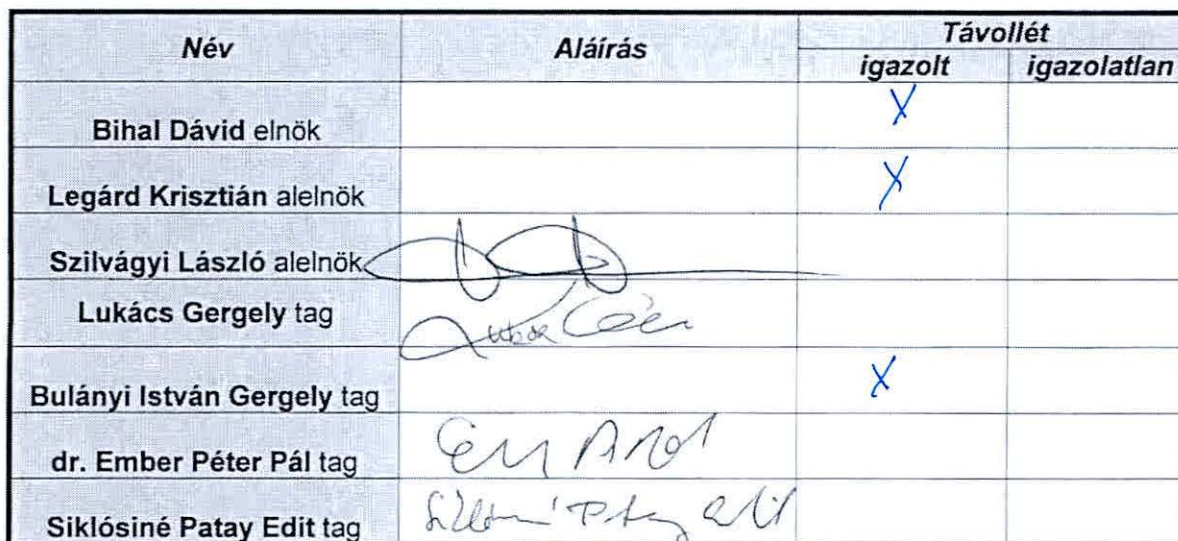 Név Aláírás Távollét
igazolt igazolatlan
Bihal Dávid elnök X
Legárd Krisztián alelnök X
Szilvágyi László alelnök
Lukács Gergely tag
Bulányi István Gergely tag X
dr. Ember Péter Pál tag
Siklósiné Patay Edit tag Siklósiné Patay Edit